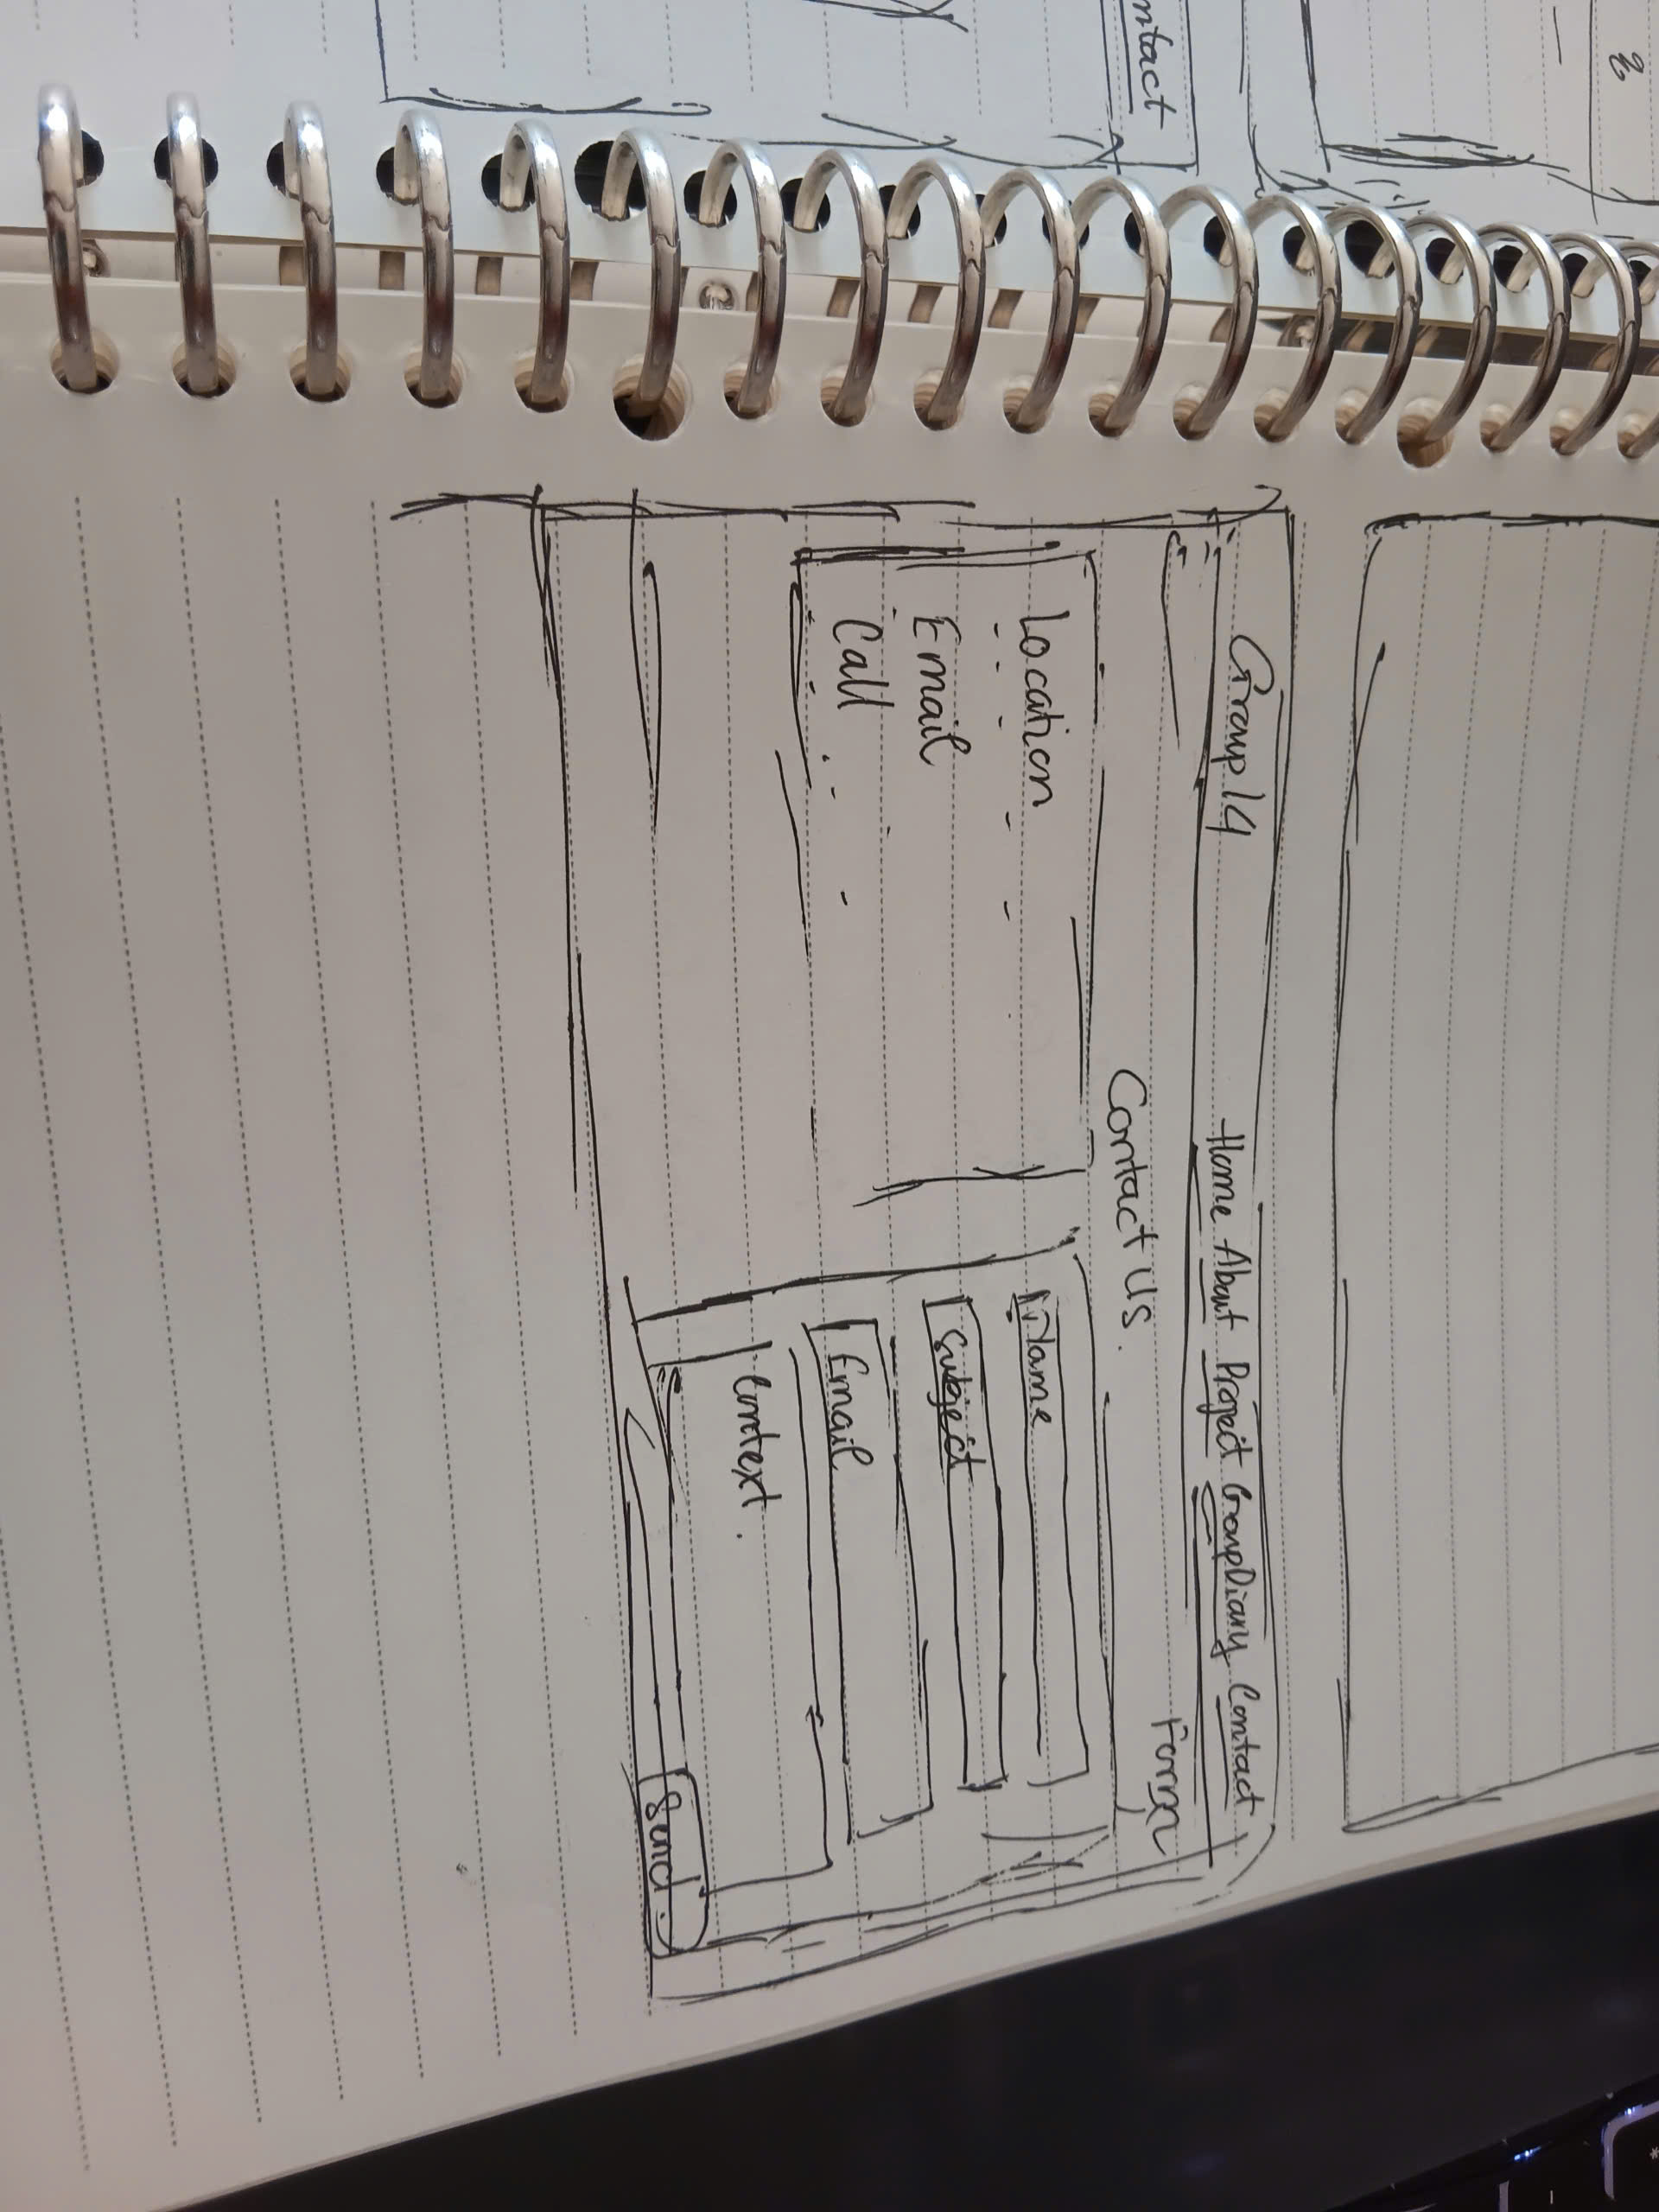 ntact
Group 14 Home About Project GroupDiary Contact
Form
Contact Us.
Location
Email
Call
Name
Subject
Email
Context.
Send